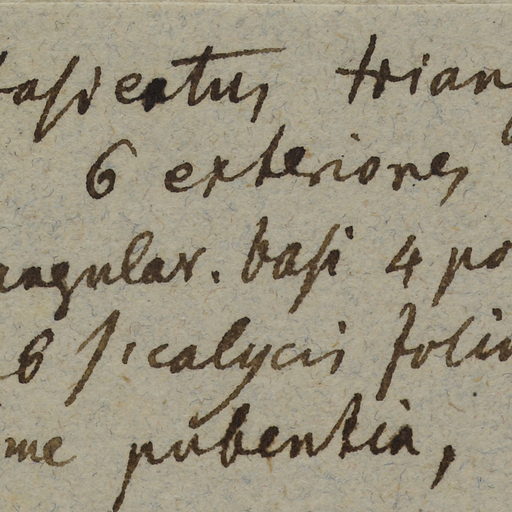 fasicatus trian
6 exteriores
angular. basi 4 po
6 s. calycis foli
me pubentia,